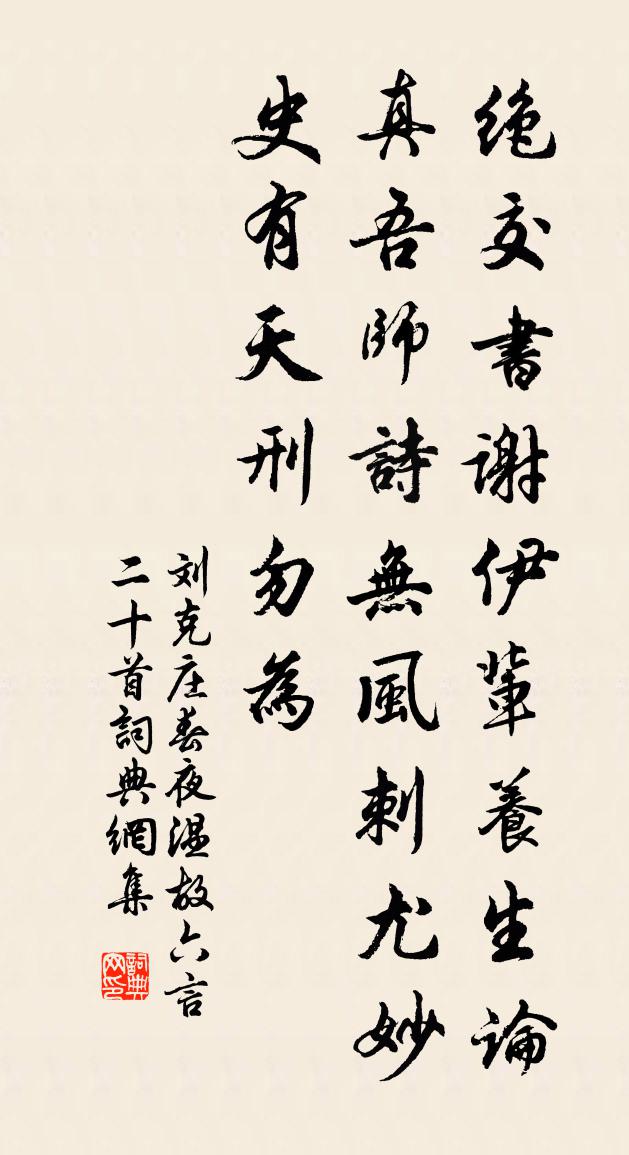 绝交書谢伊輩養生論
真吾師詩無風刺尤妙
史有天刑勿為
刘克庄春夜温故六言
二十首詞典網集
詞典网印